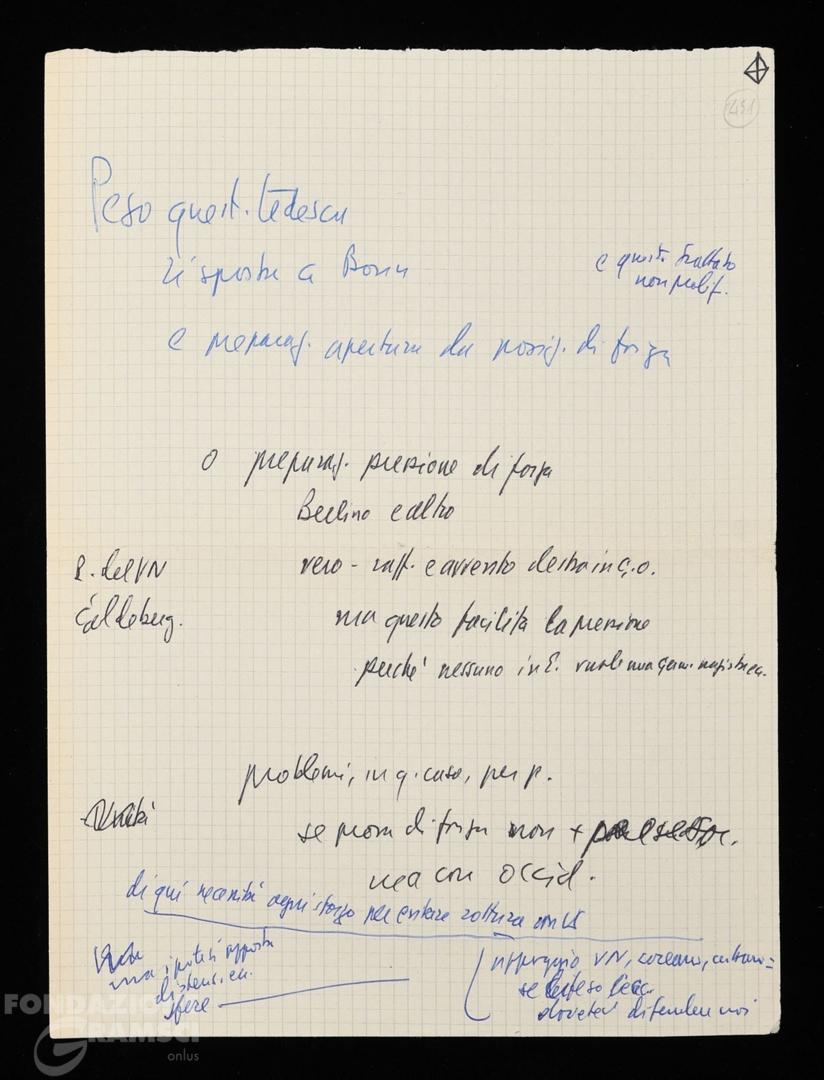 451
Peso quest. tedesca
risposta a Bonn
e questo trattato
non prolif.
e preparaz. apertura da posiz. di forza
o preparaz. pressione di forza
Berlino e altro
R. del VN
vero - raff. e avvento destra in C.O.
Goldeberg.
ma questo facilita la pressione
perché nessuno in E. vuole una Germ.
problemi, in q. caso, per p.
Unità
se prova di forza non +
ma con occid.
di qui necessità ogni sforzo per evitare rottura
ma ipotesi opposta
sfere
appoggio VN, coreano, cubano =
se
dovete difendervi
FONDAZIONE
GRAMSCI
onlus